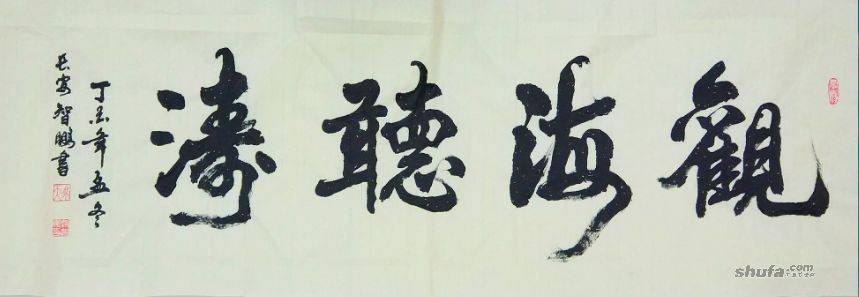 觀海聽濤
丁酉年孟冬
長安智鵬書
shufa.com